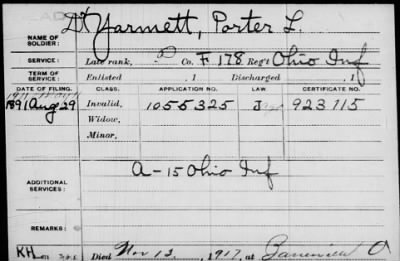 DeYarmett, Porter L.
NAME OF SOLDIER:
SERVICE: Late rank, P Co. F 178 Reg't Ohio Inf
TERM OF SERVICE: Enlisted , 1 Discharged , 1
DATE OF FILING. CLASS. APPLICATION NO. LAW. CERTIFICATE NO.
1891 Aug 29 Invalid, 1055325 J 923715
Widow,
Minor,
ADDITIONAL SERVICES: A-15 Ohio Inf
REMARKS:
KH Died Nov 12, 1917, at O